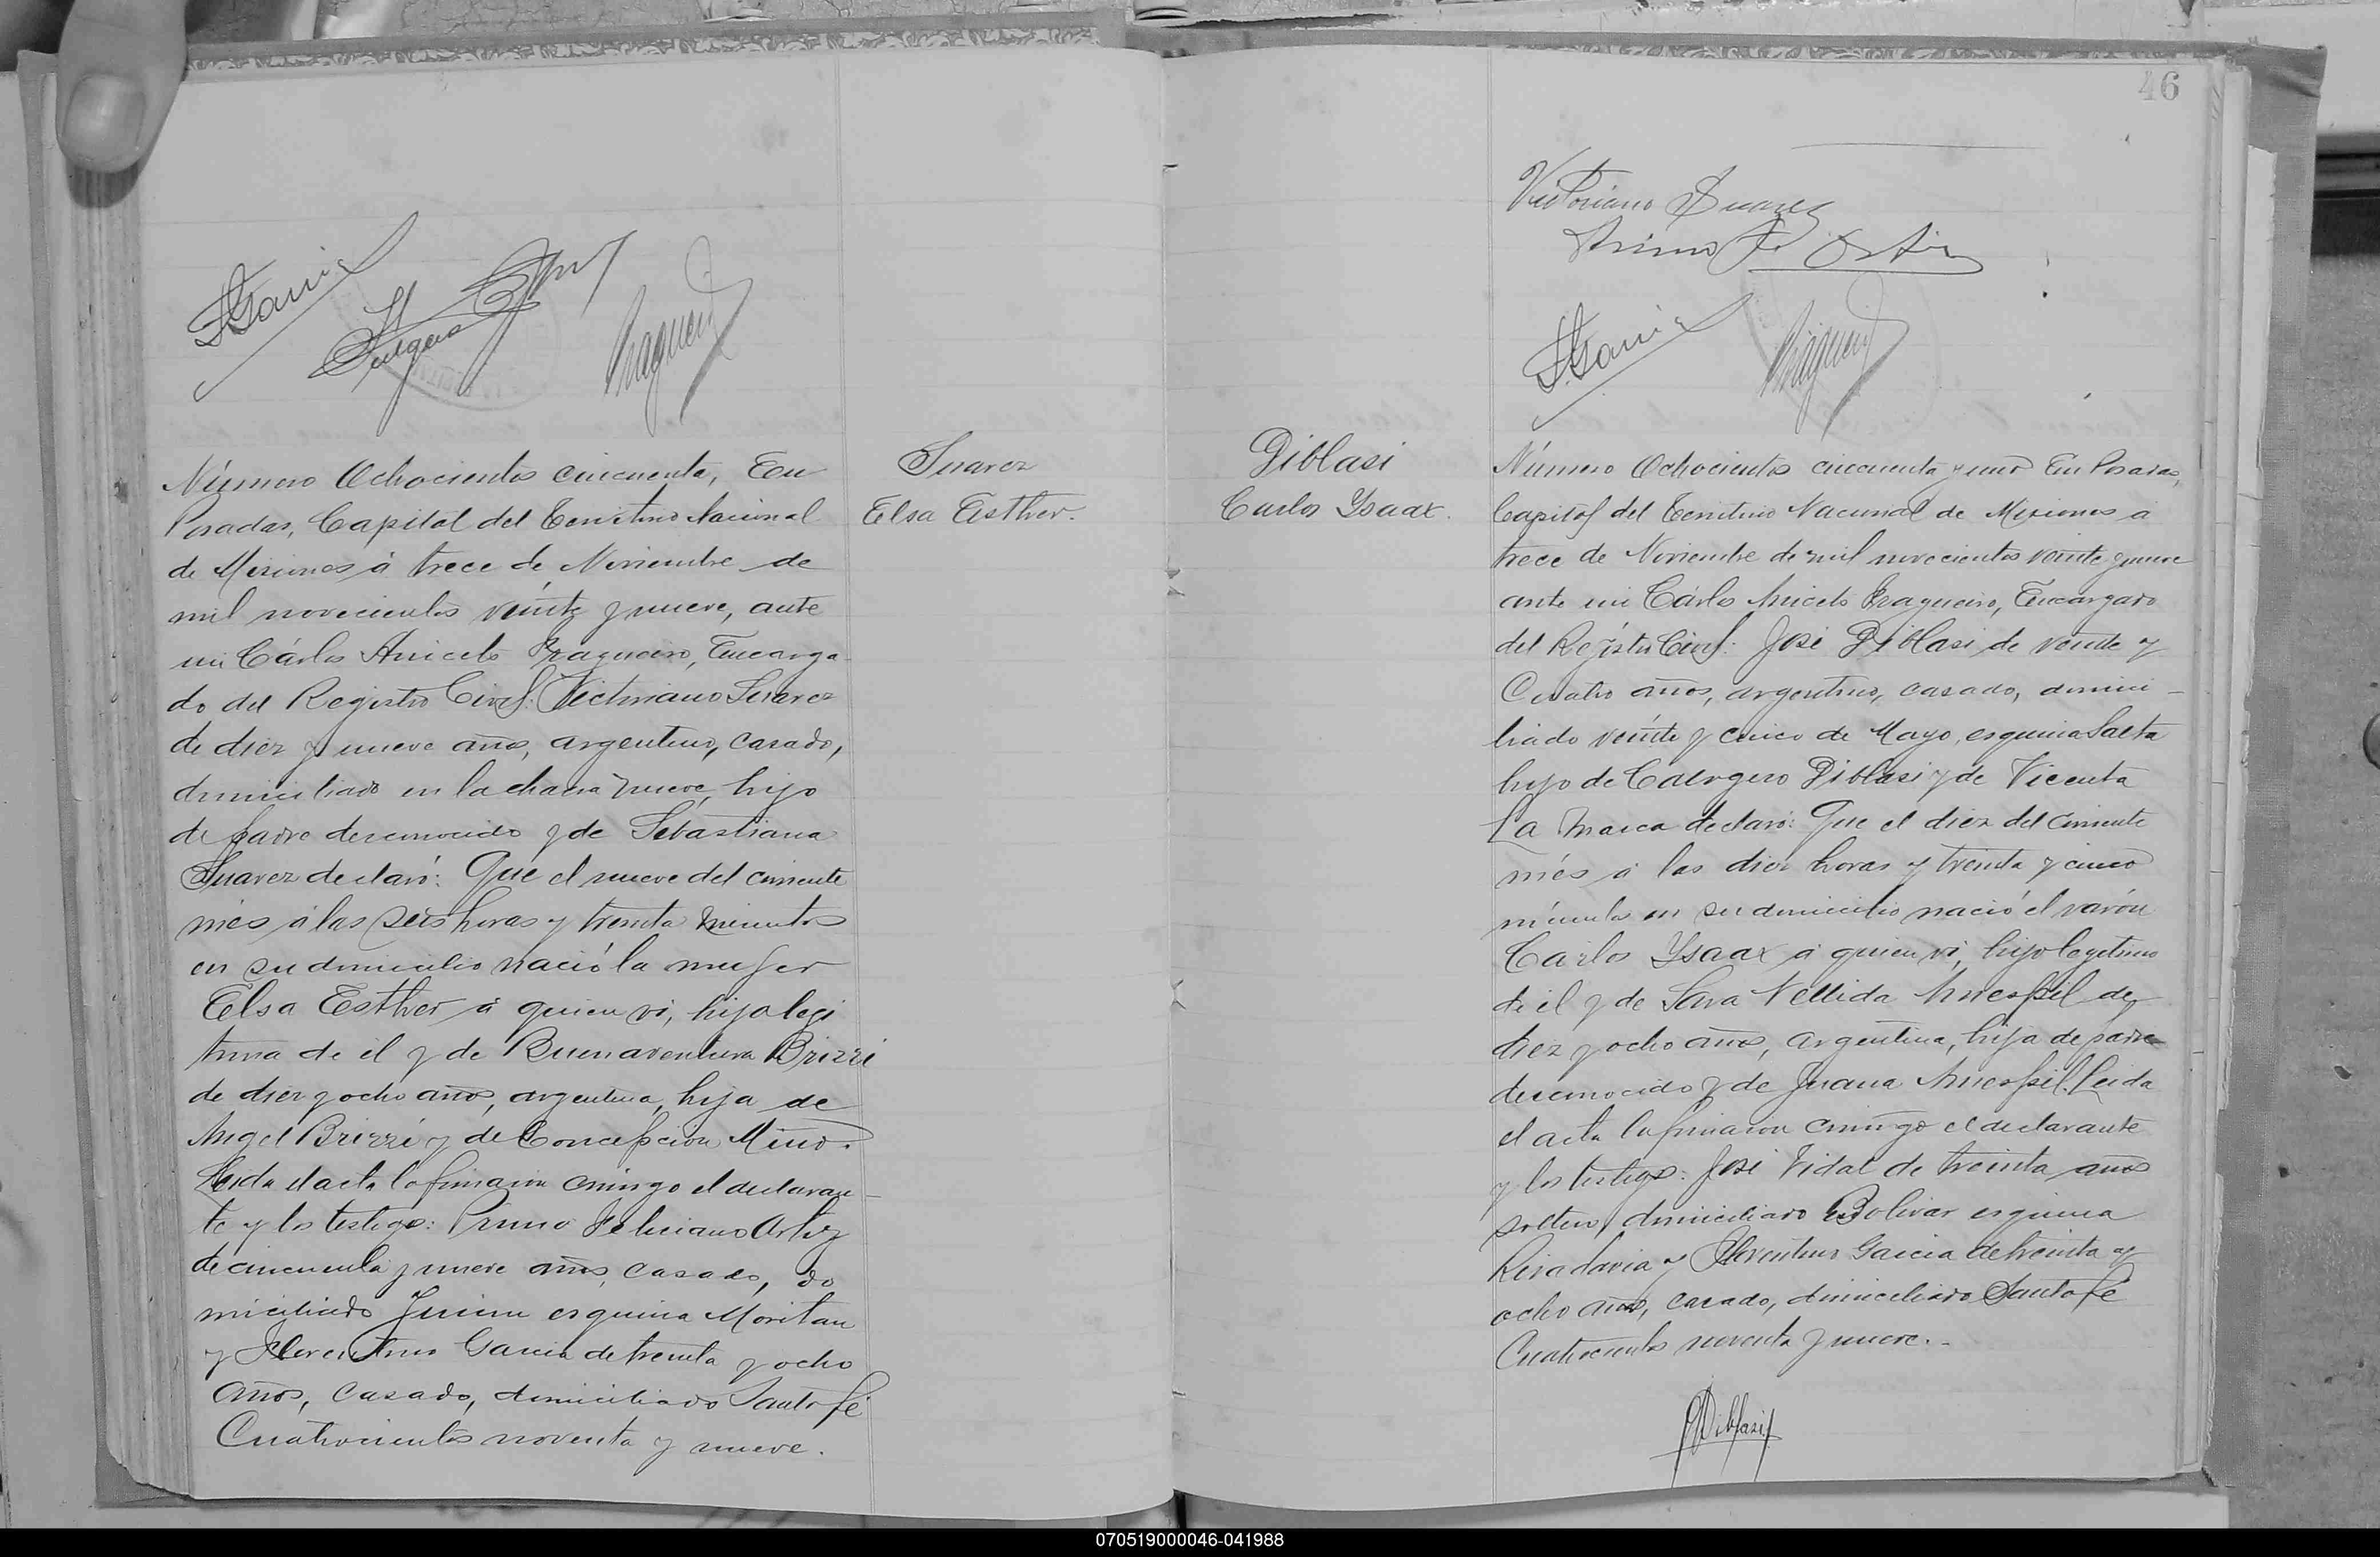 Número Ochocientos cincuenta, En
Posadas, Capital del Territorio Nacional
de Misiones á trece de Noviembre de
mil novecientos veinte y nueve, ante
mi Cárlos Aniceto Fragueiro, Encarga
do del Registro Civil: Victoriano Suarez
de diez y nueve años, argentino, casado,
domiciliado en la chacra nueve, hijo
de padre desconocido y de Sebastiana
Suarez declaró: Que el nueve del corriente
més á las seis horas y treinta minutos
en su domicilio nació la mujer
Elsa Esther á quien vi, hija legi
tima de él y de Buenaventura Brizzi
de diez y ocho años, argentina, hija de
Angel Brizzi y de Concepcion Mino.
Leida el acta la firmaron conmigo el declaran-
te y los testigos: Primo Feliciano Ortiz
de cincuenta y nueve años, casado, do
miciliado Junin esquina Moritan
y Florentino Garcia de treinta y ocho
años, casado, domiciliado Santa fé
Cuatrocientos noventa y nueve.
Suarez
Elsa Esther.
46
Victoriano Suarez
Primo F. Ortiz
Diblasi
Carlos Ysaax.
Número Ochocientos cincuenta y uno En Posadas,
Capital del Territorio Nacional de Misiones á
trece de Noviembre de mil novecientos veinte y nueve
ante mi Cárlos Aniceto Fragueiro, Encargado
del Registro Civil: José Diblasi de veinte y
Cuatro años, argentino, casado, domici-
liado veinte y cinco de Mayo, esquina Salta
hijo de Calogero Diblasi y de Vicenta
La Marca declaró: Que el diez del corriente
més á las diez horas y treinta y cinco
minutos en su domicilio nació el varón
Carlos Ysaax á quien vi, hijo legitimo
de él y de Sara Nellida de
diez y ocho años, argentina, hija de padre
desconocido y de Juana Leida
el acta la firmaron conmigo el declarante
y los testigos: José Vidal de treinta años
soltero, domiciliado Bolivar esquina
Rivadavia y Florentino Garcia de treinta y
ocho años, casado, domiciliado Santa fé
Cuatrocientos noventa y nueve.-
Diblasi
070519000046-041988